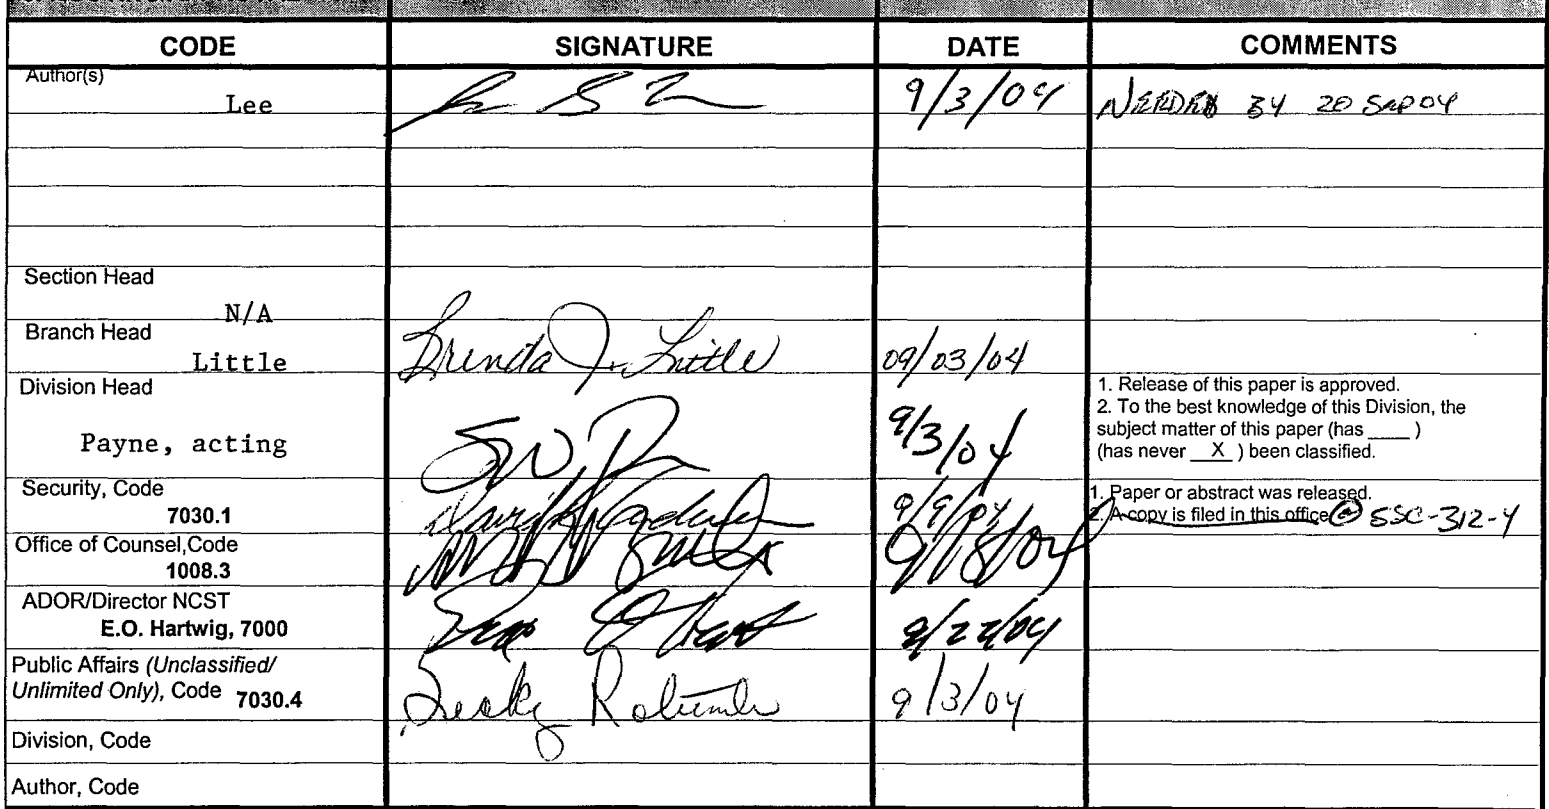 CODE SIGNATURE DATE COMMENTS
Author(s)
Lee 9/3/04 NEEDED BY 20 SEP 04
Section Head
N/A
Branch Head
Little Brenda J. Little 09/03/04
Division Head
1. Release of this paper is approved.
2. To the best knowledge of this Division, the
Payne, acting 9/3/04 subject matter of this paper (has ____ )
(has never X ) been classified.
Security, Code
7030.1 9/9/04
1. Paper or abstract was released.
2. A copy is filed in this office @ SSC-312-4
Office of Counsel,Code
1008.3
ADOR/Director NCST
E.O. Hartwig, 7000 9/22/04
Public Affairs (Unclassified/
Unlimited Only), Code 7030.4 9/3/04
Division, Code
Author, Code